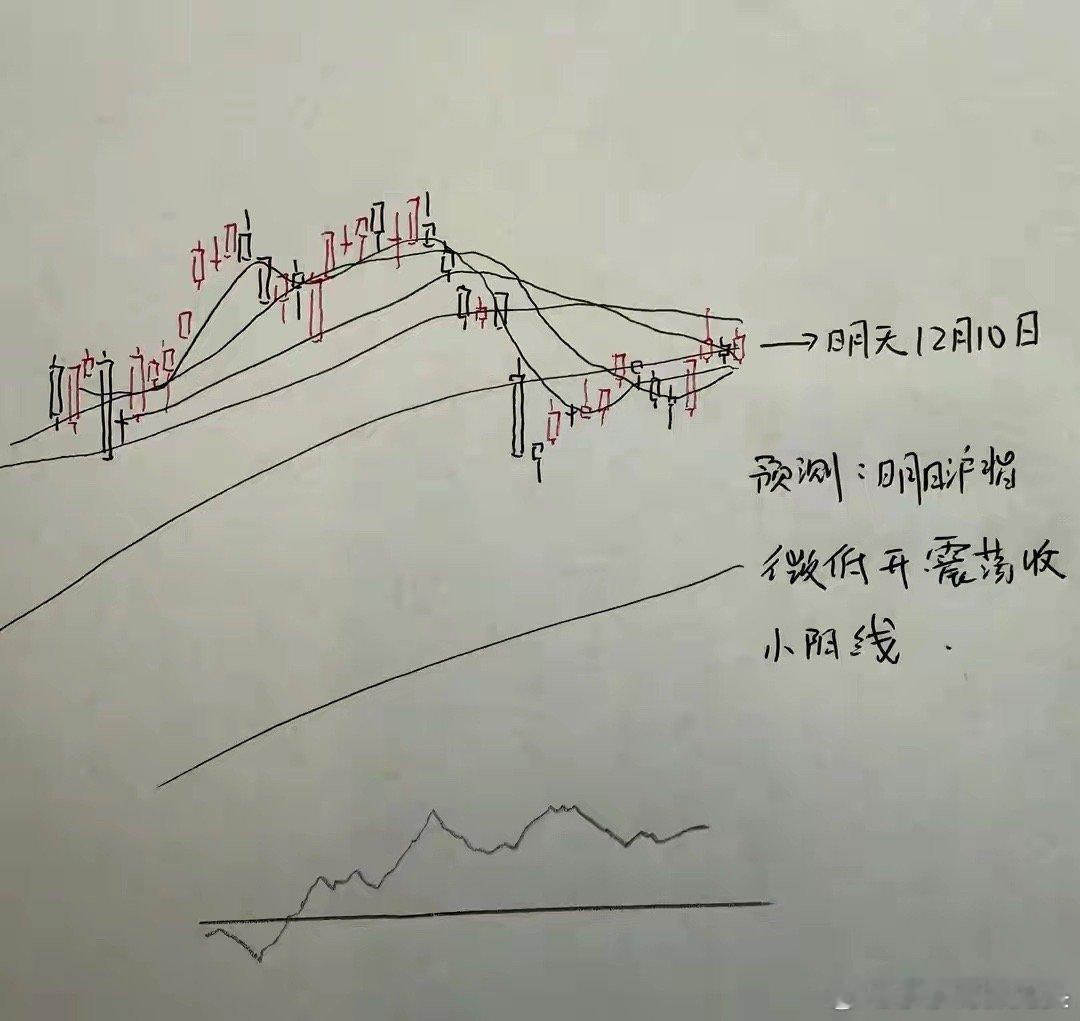 →明天12月10日
预测：明日沪指
微低开震荡收
小阳线.